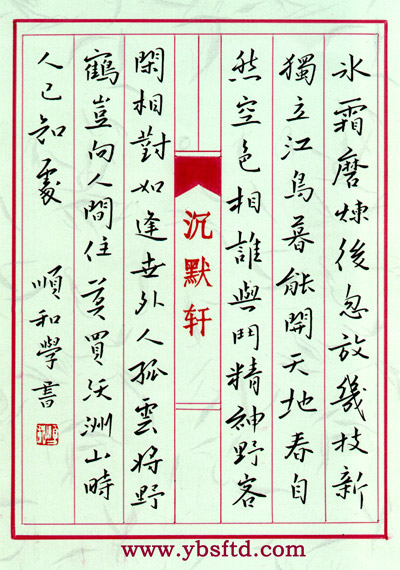 氷霜磨煉後忽放幾枝新
獨立江島暮能開天地春自
然空色相誰與鬥精神野客
沉默轩
閑相對如逢世外人孤雲將野
鶴豈向人間住莫買沃洲山時
人已知處 順和學書
www.ybsftd.com